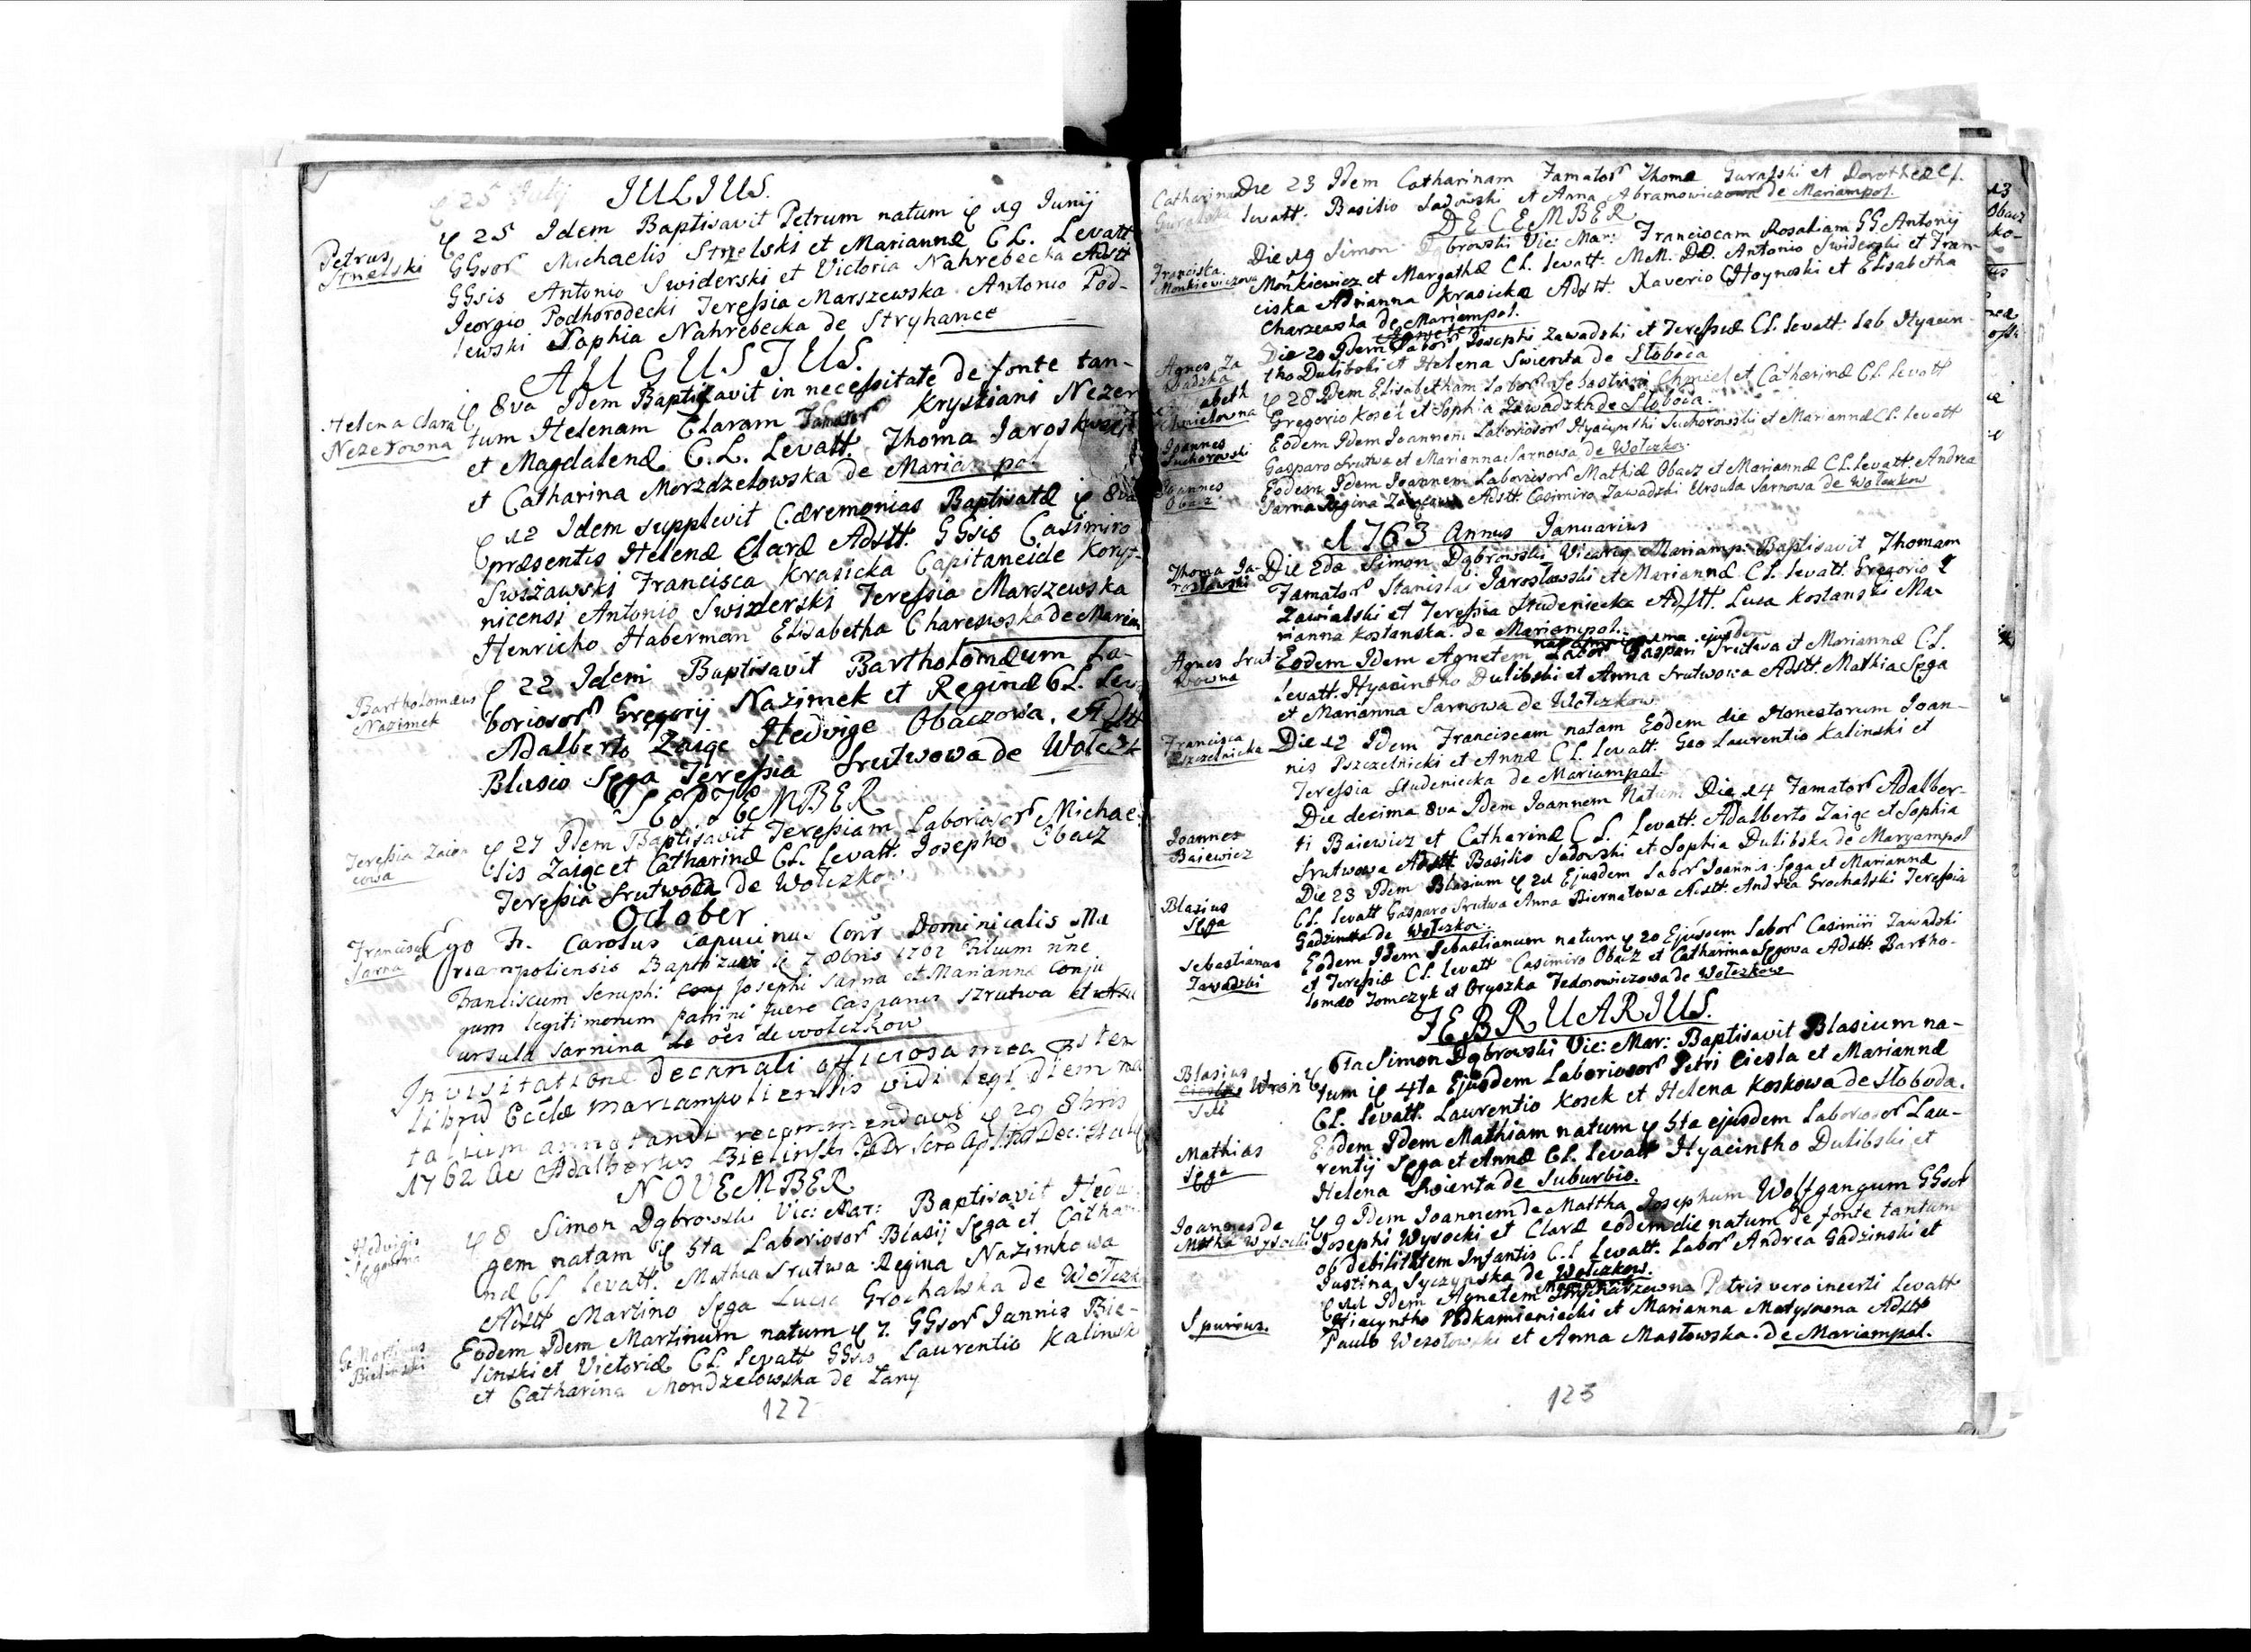 JULIUS.
Petrus Strzelski
25 Idem Baptisavit Petrum natum 19 Junij
GGsor Michaelis Strzelski et Mariannæ CL. Levatt
GGsis Antonio Swiderski et Victoria Nahrebecka Adstt
Jeorgio Podhorodecki Teressia Marszewska Antonio Pod-
lewski Sophia Nahrebecka de Stryhance
AUGUSTUS.
Helena Clara Nezerowna
8va Idem Baptisavit in necessitate de fonte tan-
tum Helenam Claram Famator Krystiani Nezer
et Magdalenæ C.L. Levatt. Thoma Jaroslawski
et Catharina Morzdzelowska de Mariampol
12 Idem supplevit Cæremonias Baptisatæ 8va
præsentis Helenæ Claræ Adstt. GGsis Casimiro
Swizawski Francisca Krasicka Capitaneide Koryt-
nicensi Antonio Swizderski Teressia Marszewska
Henricho Haberman Elisabetha Charzewska de Mariam
Bartholomæus Nazimek
22 Idem Baptisavit Bartholomæum La-
boriosor Gregorij Nazimek et Reginæ CL. Lev
Adalberto Zaiąc Hedvige Obaczowa. Adstt
Blasio Sęga Teressia Srutwowa de Wołczk
SEPTEMBER
Teressia Zaiącowa
27 Idem Baptisavit Teressiam Laboriosor Michae-
lis Zaiąc et Catharinæ CL. Levatt. Josepho Obacz
Teressia Srutwowa de Wołczkow
October
Franciscus Sarna
Ego Fr. Carolus Capucinus Conr Dominicalis Ma
riampoliensis Baptizavi 7 8bris 1762 Filium nne
Franciscum Seraph: Josephi Sarna et Marianna Conju
gum legitimorum patrini fuere Casparus Szrutwa et
ursula Sarnina de oes de wołczkow
In visitatione decanali officiosa mea osten
libru Ecclæ mariampoliensis vidi legi diem na
talium annotandi recommendavi 29 8bris
1762 Adalbertus Bielinski
NOVEMBER
Hedvigis Sęgowna
8 Simon Dąbrowski Vic: Mar: Baptisavit Hedvi-
gem natam 5ta Laboriosor Blasij Sęga et Cathari-
næ CL Levatt. Mathia Srutwa Regina Nazimkowa
Adstt Martino Sęga Lucia Grochalska de Wołczk
Martinus Bielinski
Eodem Idem Martinum natum 7. GGsor Joannis Bie-
linski et Victoriæ CL. Levatt GGsis Laurentio Kalinski
et Catharina Mondzelowska de Łany
122
Catharina Guralska
Die 23 Idem Catharinam Famator Thomæ Guralski et Dorotheæ CL.
levatt. Basilio Sadowski et Anna Abramowiczowa de Mariampol.
DECEMBER
Francisca Monkiewiczowa
Die 19 Simon Dąbrowski Vic: Mar: Franciscam Rosaliam GG. Antonij
Monkiewicz et Margathæ CL. levatt. MM. DD. Antonio Swiderski et Fran-
ciska Adrianna Krasicka Adstt. Xaverio Choynoski et Elisabetha
Charzewska de Mariampol.
Agnes Zawadzka
Agnetem
Die 20 Idem Labor Josephi Zawadzki et Teressiæ CL. levatt. Lab. Hyacin-
tho Dulibski et Helena Swienta de Słoboda
abeth Chmielowna
28 Idem Elisabetham Labor Sebastiani Chmiel et Catharinæ CL. levatt
Gregorio Kosec et Sophia Zawadzka de Słoboda.
Joannes Suchorowski
Eodem Idem Joannem Laboriosor Hyacynthi Suchorowski et Mariannæ CL. levatt
Gasparo Srutwa et Marianna Sarnowa de Wołczkow.
Joannes Obacz
Eodem Idem Joannem Laboriosor Mathiæ Obacz et Mariannæ CL. levatt. Andrea
Sarna Regina Adstt. Casimiro Zawadzki Ursula Sarnowa de Wołczkow
1763 Annus Januarius
Thoma Jaroslawski
Die 2da Simon Dąbrowski Vicariq Mariamp: Baptisavit Thomam
Famator Stanislai Jaroslawski et Mariannæ CL. levatt. Gregorio
Zawialski et Teressia Studeniecka Adstt. Luca Kostanski Ma-
rianna Kostanska. de Mariampol.
Agnes Srutwowna
natam 1ma ejusdem
Eodem Idem Agnetem Labor Gaspari Srutwa et Mariannæ CL.
levatt. Hyacintho Dulibski et Anna Srutwowa Adstt. Mathia Sęga
et Marianna Sarnowa de Wołczkow.
Francisca Pszczelnicka
Die 12 Idem Franciscam natam Eodem die Honestorum Joan-
nis Pszczelnicki et Annæ CL. levatt. Gso Laurentio Kalinski et
Teressia Studeniecka de Mariampol.
Joannes Baiewicz
Die decima 8va Idem Joannem Natum Die 14 Famator Adalber-
ti Baiewicz et Catharinæ CL. Levatt. Adalberto Zaiąc et Sophia
Srutwowa Adstt Basilio Sadowski et Sophia Dulibska de Maryampol
Blasius Sęga
Die 23 Idem Blasium 21 Ejusdem Labor Joannis Sęga et Mariannæ
CL. levatt Gasparo Srutwa Anna Biernatowa Adstt. Andrea Grochalski Teressia
Gadzinska de Wołczkow.
Sebastianus Zawadzki
Eodem Idem Sebastianum natum 20 Ejusdem Labor Casimiri Zawadzki
et Teressiæ CL. levatt Casimiro Obacz et Catharina Sęgowa Adstt. Bartho-
lomæo Tomczyk et Oryszka Fedorowiczowa de Wołczkow
FEBRUARIUS.
Blasius
6ta Simon Dąbrowski Vic: Mar: Baptisavit Blasium na-
tum 4ta Ejusdem Laboriosor Petri Ciesla et Mariannæ
CL. levatt. Laurentio Kosek et Helena Koskowa de Słoboda.
Mathias Sęga
Eodem Idem Mathiam natum 5ta ejusdem Laboriosor Lau-
rentij Sęga et Annæ CL. levatt Hyacintho Dulibski et
Helena Swienta de Suburbio.
Joannes de Matha Wysocki
9 Idem Joannem de Mattha Josephum Wolfgangum GGsor
Josephi Wysocki et Claræ eodem die natum de fonte tantum
ob debilitatem Infantis C.L Levatt. Labor Andrea Gadzinski et
Justina Syczynska de Wołczkow.
Spurius.
11 Idem Agnetem Patris vero incerti Levatt
Hiacyntho Podkamieniecki et Marianna Matysowna Adstt
Paulo Wesołowski et Anna Masłowska. de Mariampol.
123